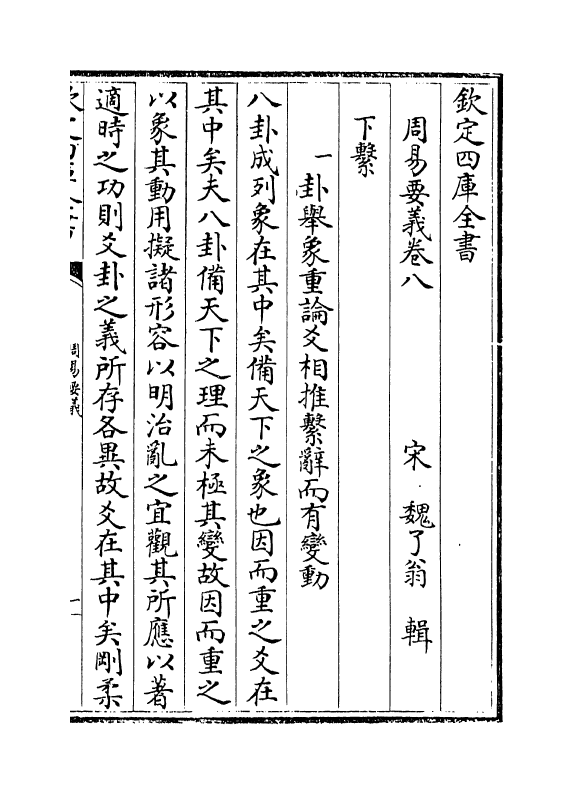 欽定四庫全書
周易要義卷八
宋 魏了翁 輯
下繫
一卦舉象重論爻相推繫辭而有變動
八卦成列象在其中矣備天下之象也因而重之爻在
其中矣夫八卦備天下之理而未極其變故因而重之
以象其動用擬諸形容以明治亂之宜觀其所應以著
適時之功則爻卦之義所存各異故爻在其中矣剛柔
周易要義
一